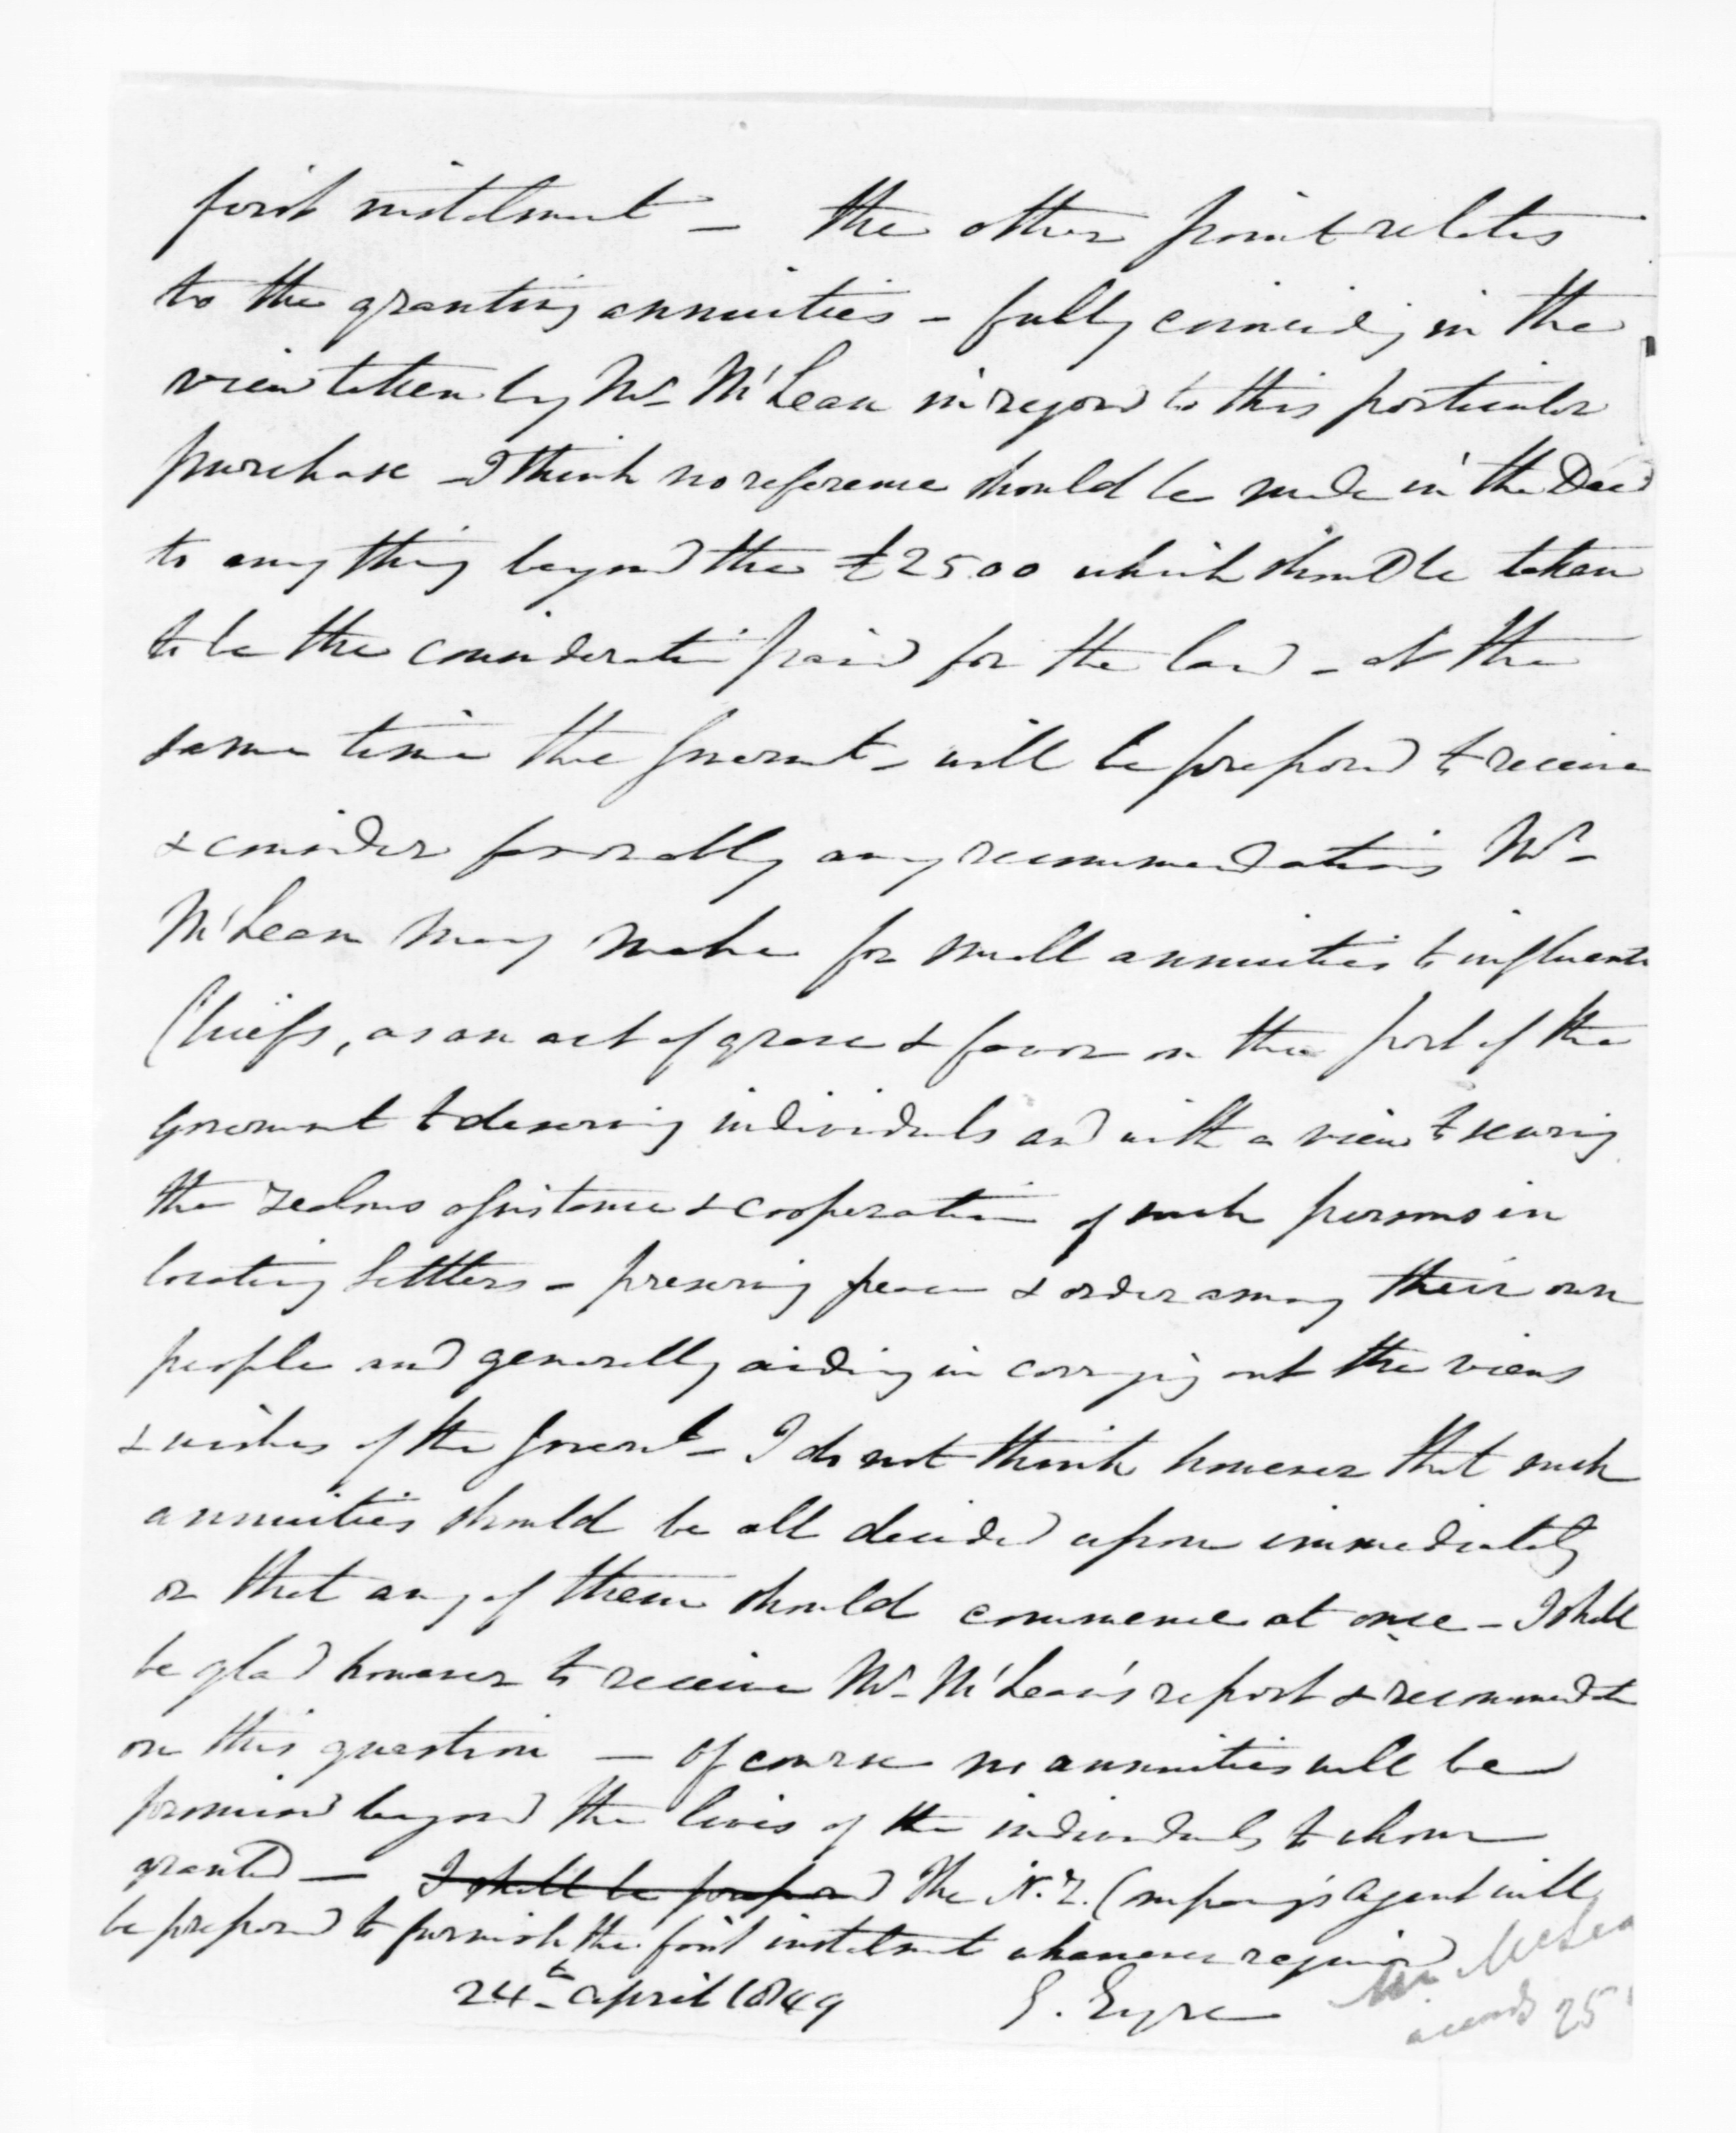 first instalment — the other point relates
to the granting annuities – fully coinciding in the
view taken by Mr. McLean in regard to this particular
purchase – I think no reference should be made in the Deed
to any thing beyond the £2500 which should be taken
to be the consideration paid for the land – at the
same time the Governt. will be prepared to receive
& consider favorably any recommendations Mr.
McLean may make for small annuities to influential
Chiefs, as an act of grace & favor on the part of the
Government to deserving individuals and with a view to securing
the zealous assistance & cooperation of such persons in
locating settlers – preserving peace & order among their own
people and generally aiding in carrying out the views
& wishes of the Governt. – I do not think however that such
annuities should be all decided upon immediately
or that any of them should commence at once – I shall
be glad however to receive Mr. McLean's report & recommendation
on this question — of course no annuities will be
promised beyond the lives of the individuals to whom
granted — I shall be prepared The N.Z. Company's Agent will
be prepared to furnish the first instalment whenever required
24th. April 1849 E. Eyre
Mr. McLea
25